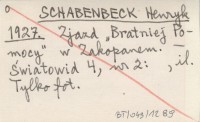 SCHABENBECK Henryk
1927. Zjazd „Bratniej Po-
mocy" w Zakopanem.
Światowid 4, nr 2: , il.
Tylko fot.
BT/043/12 89